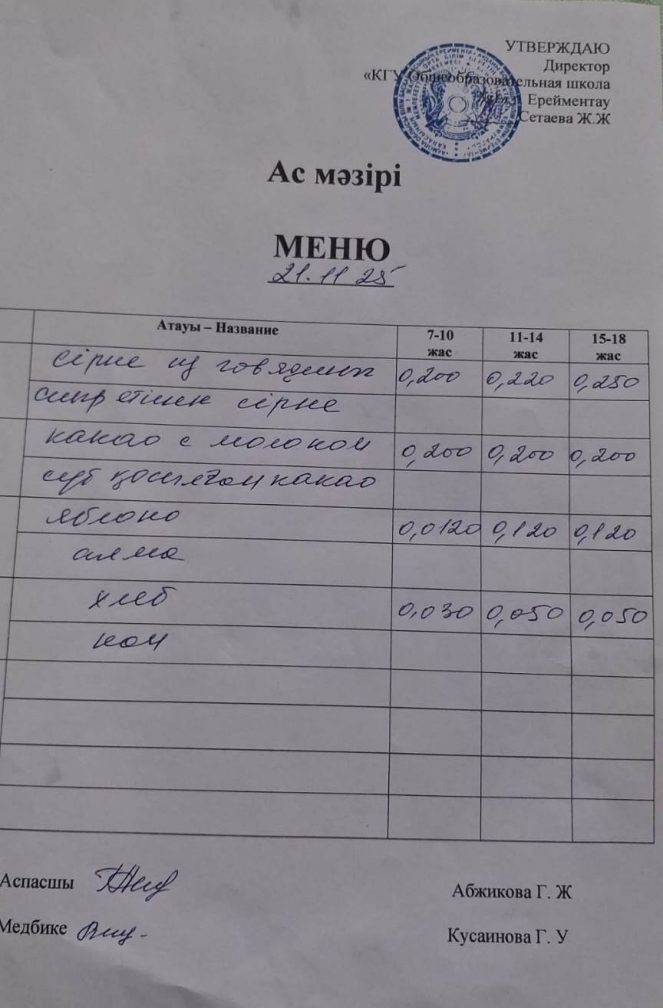 УТВЕРЖДАЮ
Директор
«КГУ Общеобразовательная школа
Ерейментау
Сетаева Ж.Ж
Ас мәзірі
МЕНЮ
21.11 25
Атауы – Название 7-10 жас 11-14 жас 15-18 жас
сірне из говядины 0,200 0,220 0,250
сиыр етінен сірне
какао с молоком 0,200 0,200 0,200
сүт қосылған какао
яблоко 0,0120 0,120 0,120
алма
хлеб 0,030 0,050 0,050
нан
Аспасшы Абжикова Г. Ж
Медбике Кусаинова Г. У